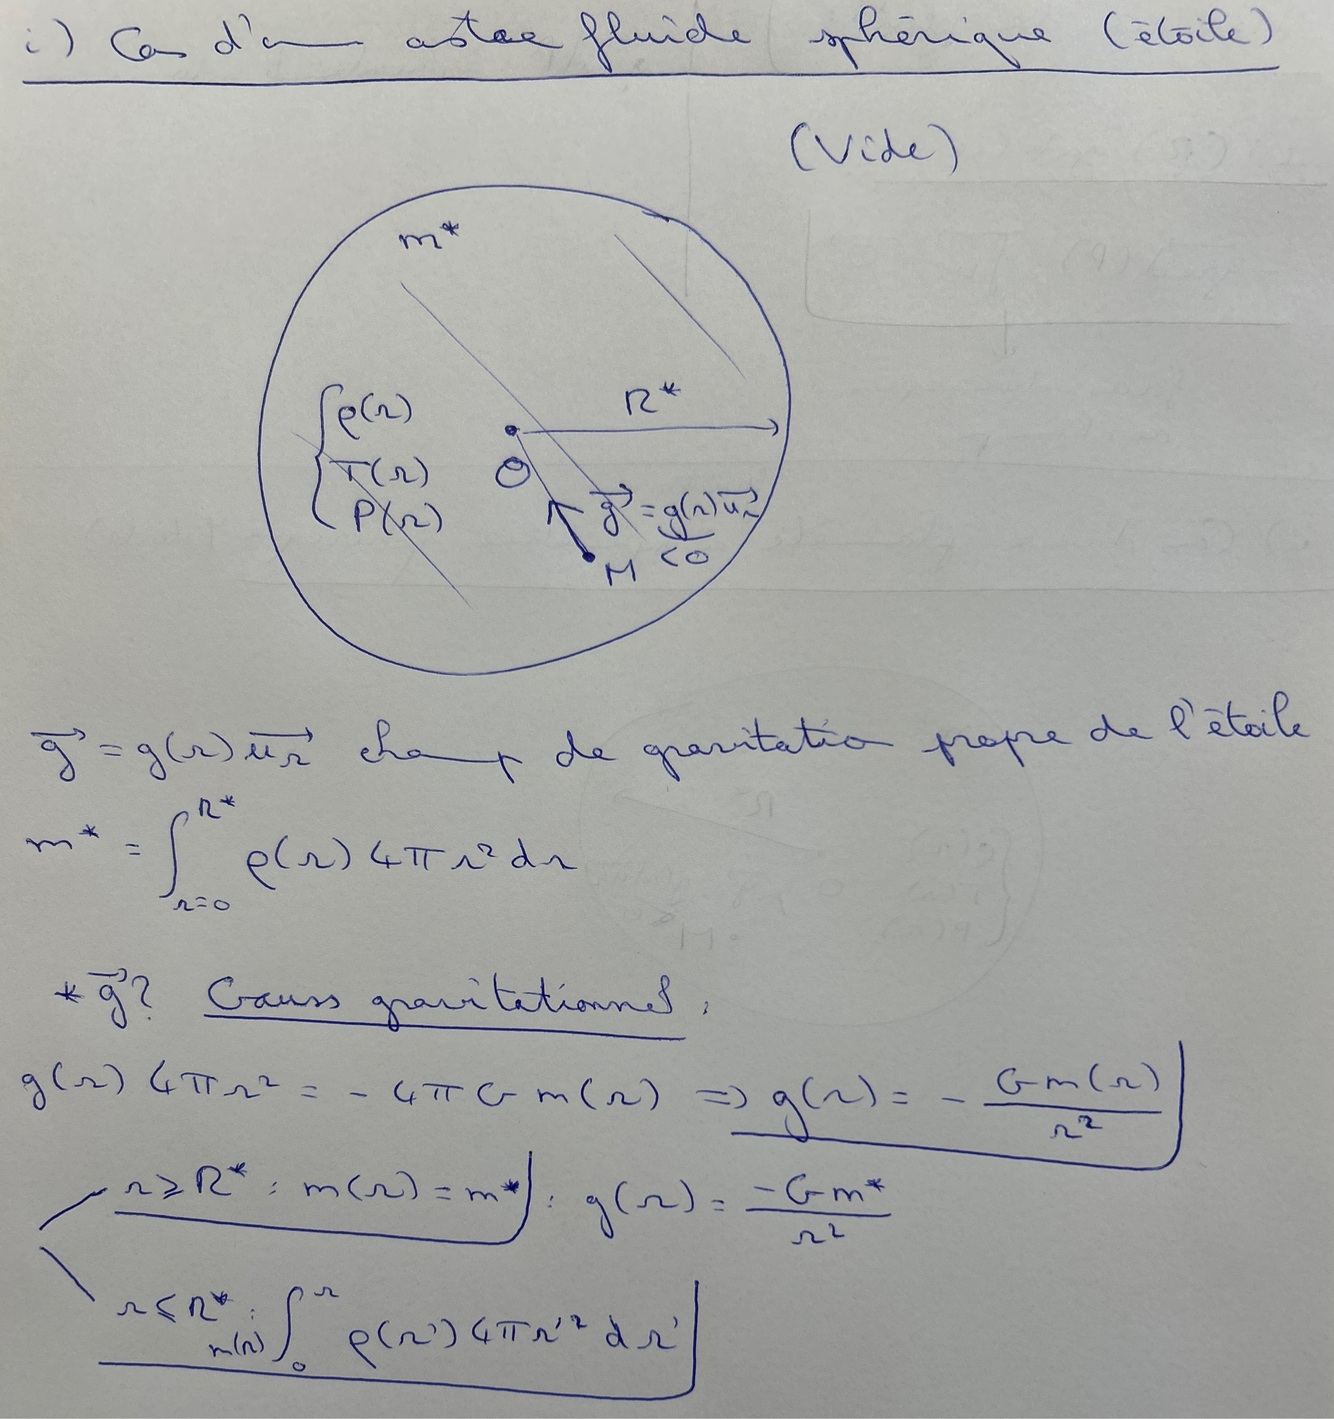 i) Cas d'un astre fluide sphérique (étoile)
(Vide)
m*
R*
ρ(r)
T(r)
P(r)
O
g⃗ = g(r) u⃗r
< 0
M
g⃗ = g(r) u⃗r champ de gravitation propre de l'étoile
m* = ∫_{r=0}^{R*} ρ(r) 4π r² dr
* g⃗ ? Gauss gravitationnel :
g(r) 4π r² = - 4π G m(r) => g(r) = - G m(r) / r²
r ≥ R* : m(r) = m* : g(r) = -G m* / r²
r ≤ R* : m(r) ∫_0^r ρ(r') 4π r'² dr'